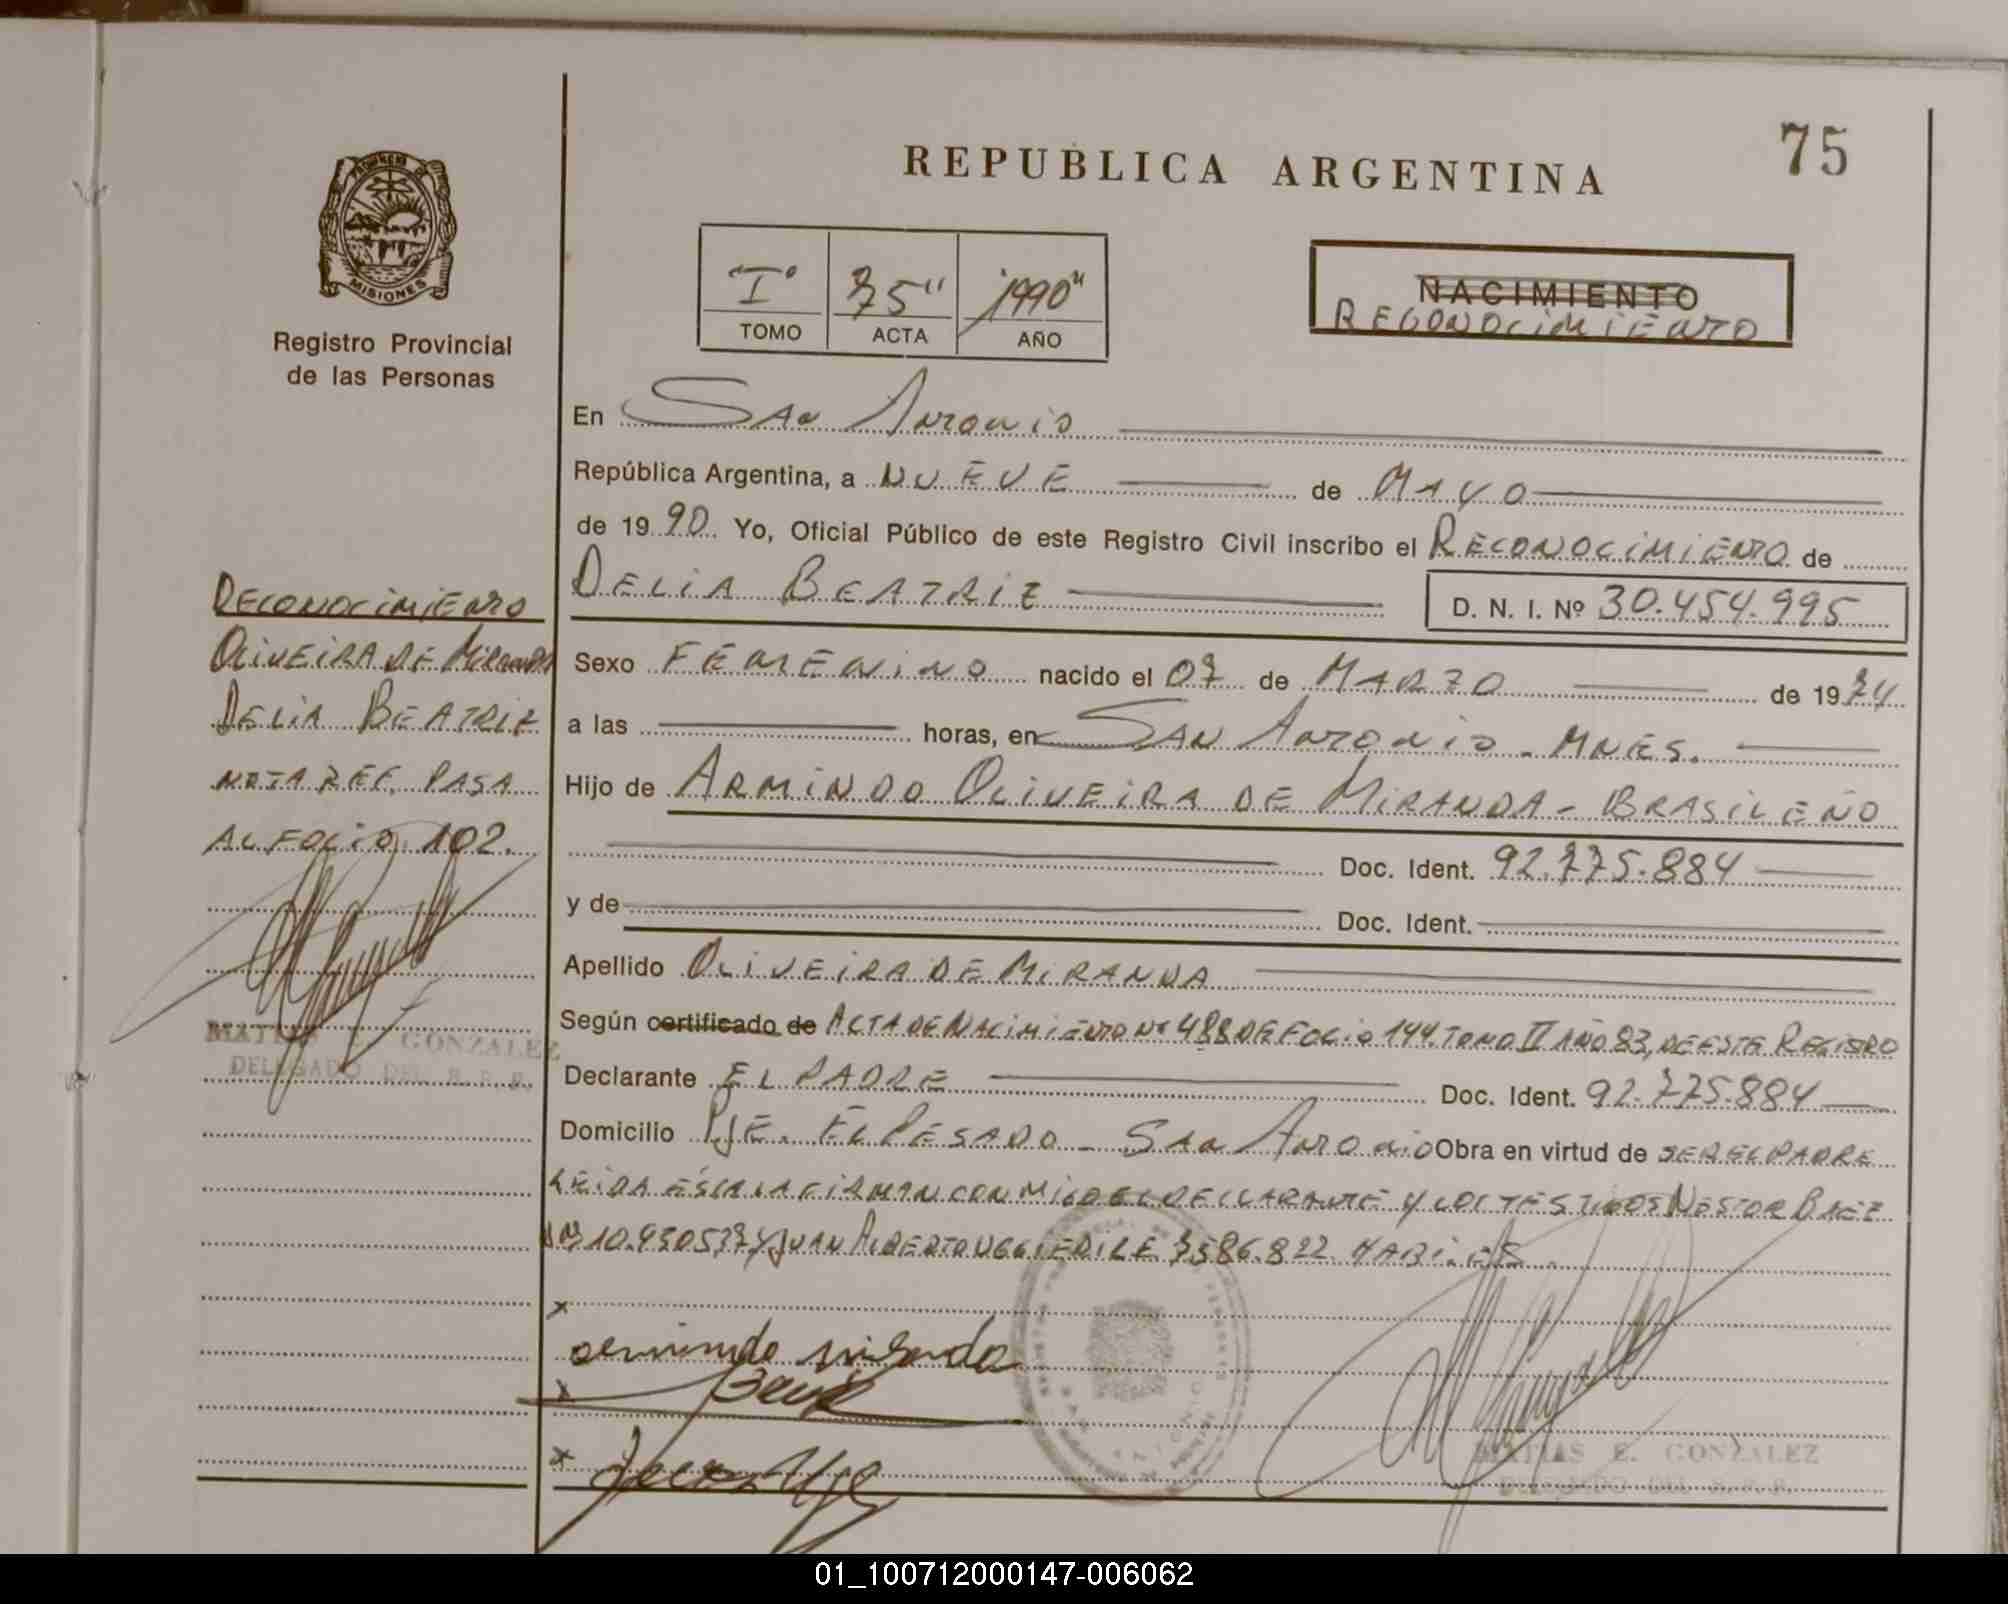 75
REPUBLICA ARGENTINA
PROVINCIA DE
MISIONES
Registro Provincial
de las Personas
"I" 75" 1990"
TOMO ACTA AÑO
NACIMIENTO
RECONOCIMIENTO
En San Antonio
República Argentina, a NUEVE de MAYO
de 1990. Yo, Oficial Público de este Registro Civil inscribo el RECONOCIMIENTO de
DELIA BEATRIZ D. N. I. Nº 30.454.995
Sexo FEMENINO nacido el 07 de MARZO de 1974
a las horas, en SAN Antonio - MNES.
Hijo de ARMINDO OLIVEIRA DE MIRANDA - BRASILEÑO
Doc. Ident. 92.775.884
y de Doc. Ident.
Apellido OLIVEIRA DE MIRANDA
Según certificado de ACTA DE NACIMIENTO Nº 488 DE FOLIO 144. TOMO II AÑO 83, DE ESTE REGISTRO
Declarante EL PADRE Doc. Ident. 92.775.884
Domicilio PJE. EL PESADO - San Antonio Obra en virtud de SER EL PADRE
LEIDA ESTA LA FIRMAN CONMIGO EL DECLARANTE Y LOS TESTIGOS NESTOR BAEZ
10.930537 Y JUAN ALBERTO 7586.822
x
armindo miranda
x Baez
x
MATIAS E. GONZALEZ
DELEGADO DEL R.P.P.
RECONOCIMIENTO
OLIVEIRA DE MIRANDA
DELIA BEATRIZ
NOTA REF. PASA
AL FOLIO 102.
MATIAS E. GONZALEZ
DELEGADO DEL R.P.P.
01_100712000147-006062